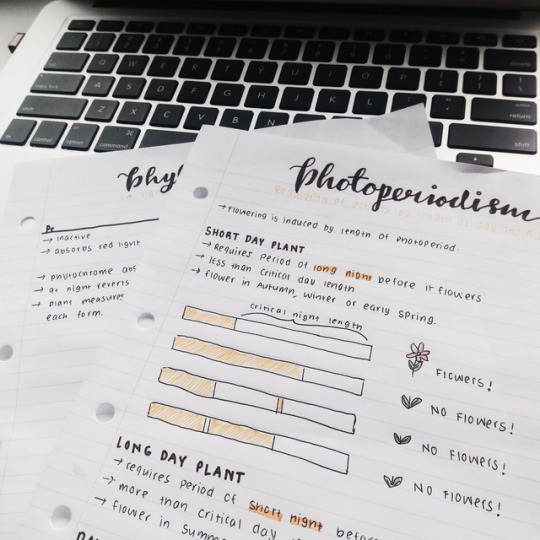 Photoperiodism
→ Flowering is induced by length of photoperiod.
SHORT DAY PLANT
→ Requires period of long night before it flowers
→ less than critical day length
→ flower in Autumn, winter or early spring.
critical night length
FLOWERS!
NO FLOWERS!
NO FLOWERS!
NO FLOWERS!
LONG DAY PLANT
→ requires period of short night
→ more than critical day
→ flower in summ
Phy
Pr
→ inactive
→ absorbs red light
→ phytochrome abs
→ at night reverts
→ plant measures
each form.
caps lock
shift
control
option
command
return
shift
Q W E R T Y U I O P
A S D F G H J K L
Z X C V B N M